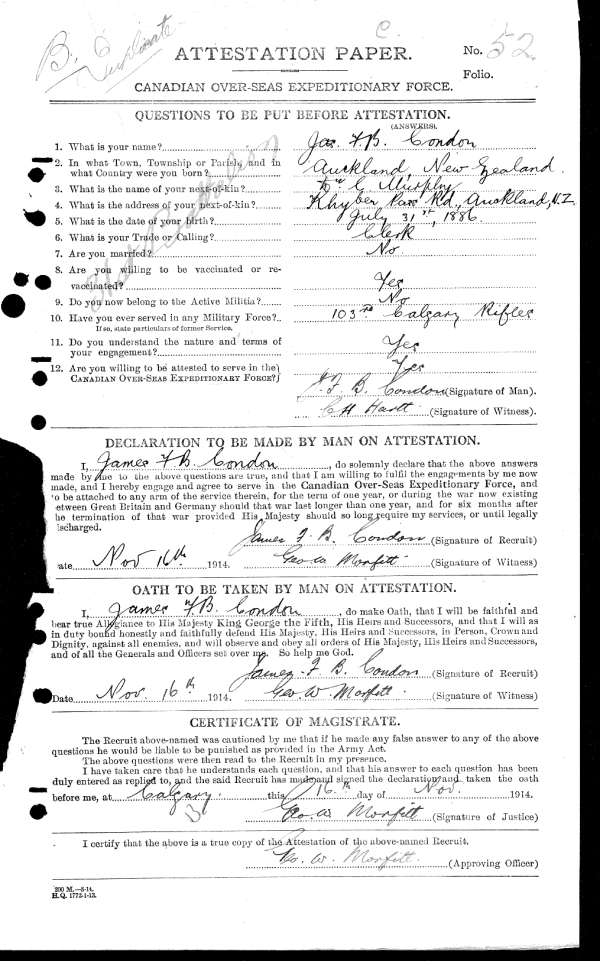 B. Duplicate
C.
ATTESTATION PAPER.
No. 52
Folio.
CANADIAN OVER-SEAS EXPEDITIONARY FORCE.
QUESTIONS TO BE PUT BEFORE ATTESTATION.
(ANSWERS).
1. What is your name? Jas. F. B. Condon
2. In what Town, Township or Parish, and in
what Country were you born? Auckland, New Zealand
3. What is the name of your next-of-kin? Murphy
4. What is the address of your next-of-kin? Khyber Pass Rd, Auckland, N.Z.
5. What is the date of your birth? July 31st, 1886.
6. What is your Trade or Calling? Clerk
7. Are you married? No
8. Are you willing to be vaccinated or re-
vaccinated? Yes
9. Do you now belong to the Active Militia? No
10. Have you ever served in any Military Force? 103rd Calgary Rifles
If so, state particulars of former Service.
11. Do you understand the nature and terms of
your engagement? Yes
12. Are you willing to be attested to serve in the
CANADIAN OVER-SEAS EXPEDITIONARY FORCE? Yes
J. F. B. Condon (Signature of Man).
C H Hartt (Signature of Witness).
31st Battalion
DECLARATION TO BE MADE BY MAN ON ATTESTATION.
I, James F B. Condon, do solemnly declare that the above answers
made by me to the above questions are true, and that I am willing to fulfil the engagements by me now
made, and I hereby engage and agree to serve in the Canadian Over-Seas Expeditionary Force, and
to be attached to any arm of the service therein, for the term of one year, or during the war now existing
etween Great Britain and Germany should that war last longer than one year, and for six months after
he termination of that war provided His Majesty should so long require my services, or until legally
ischarged.
James F. B. Condon (Signature of Recruit)
ate Nov 16th 1914. Geo. W. Morfitt (Signature of Witness)
OATH TO BE TAKEN BY MAN ON ATTESTATION.
I, James F. B. Condon, do make Oath, that I will be faithful and
bear true Allegiance to His Majesty King George the Fifth, His Heirs and Successors, and that I will as
in duty bound honestly and faithfully defend His Majesty, His Heirs and Successors, in Person, Crown and
Dignity, against all enemies, and will observe and obey all orders of His Majesty, His Heirs and Successors,
and of all the Generals and Officers set over me. So help me God.
James F. B. Condon (Signature of Recruit)
Date Nov. 16th 1914. Geo. W. Morfitt (Signature of Witness)
CERTIFICATE OF MAGISTRATE.
The Recruit above-named was cautioned by me that if he made any false answer to any of the above
questions he would be liable to be punished as provided in the Army Act.
The above questions were then read to the Recruit in my presence.
I have taken care that he understands each question, and that his answer to each question has been
duly entered as replied to, and the said Recruit has made and signed the declaration and taken the oath
before me, at Calgary. this 16.th day of Nov. 1914.
Geo. W. Morfitt (Signature of Justice)
I certify that the above is a true copy of the Attestation of the above-named Recruit.
Geo. W. Morfitt. (Approving Officer)
200 M.—8-14.
H.Q. 1772-1-13.